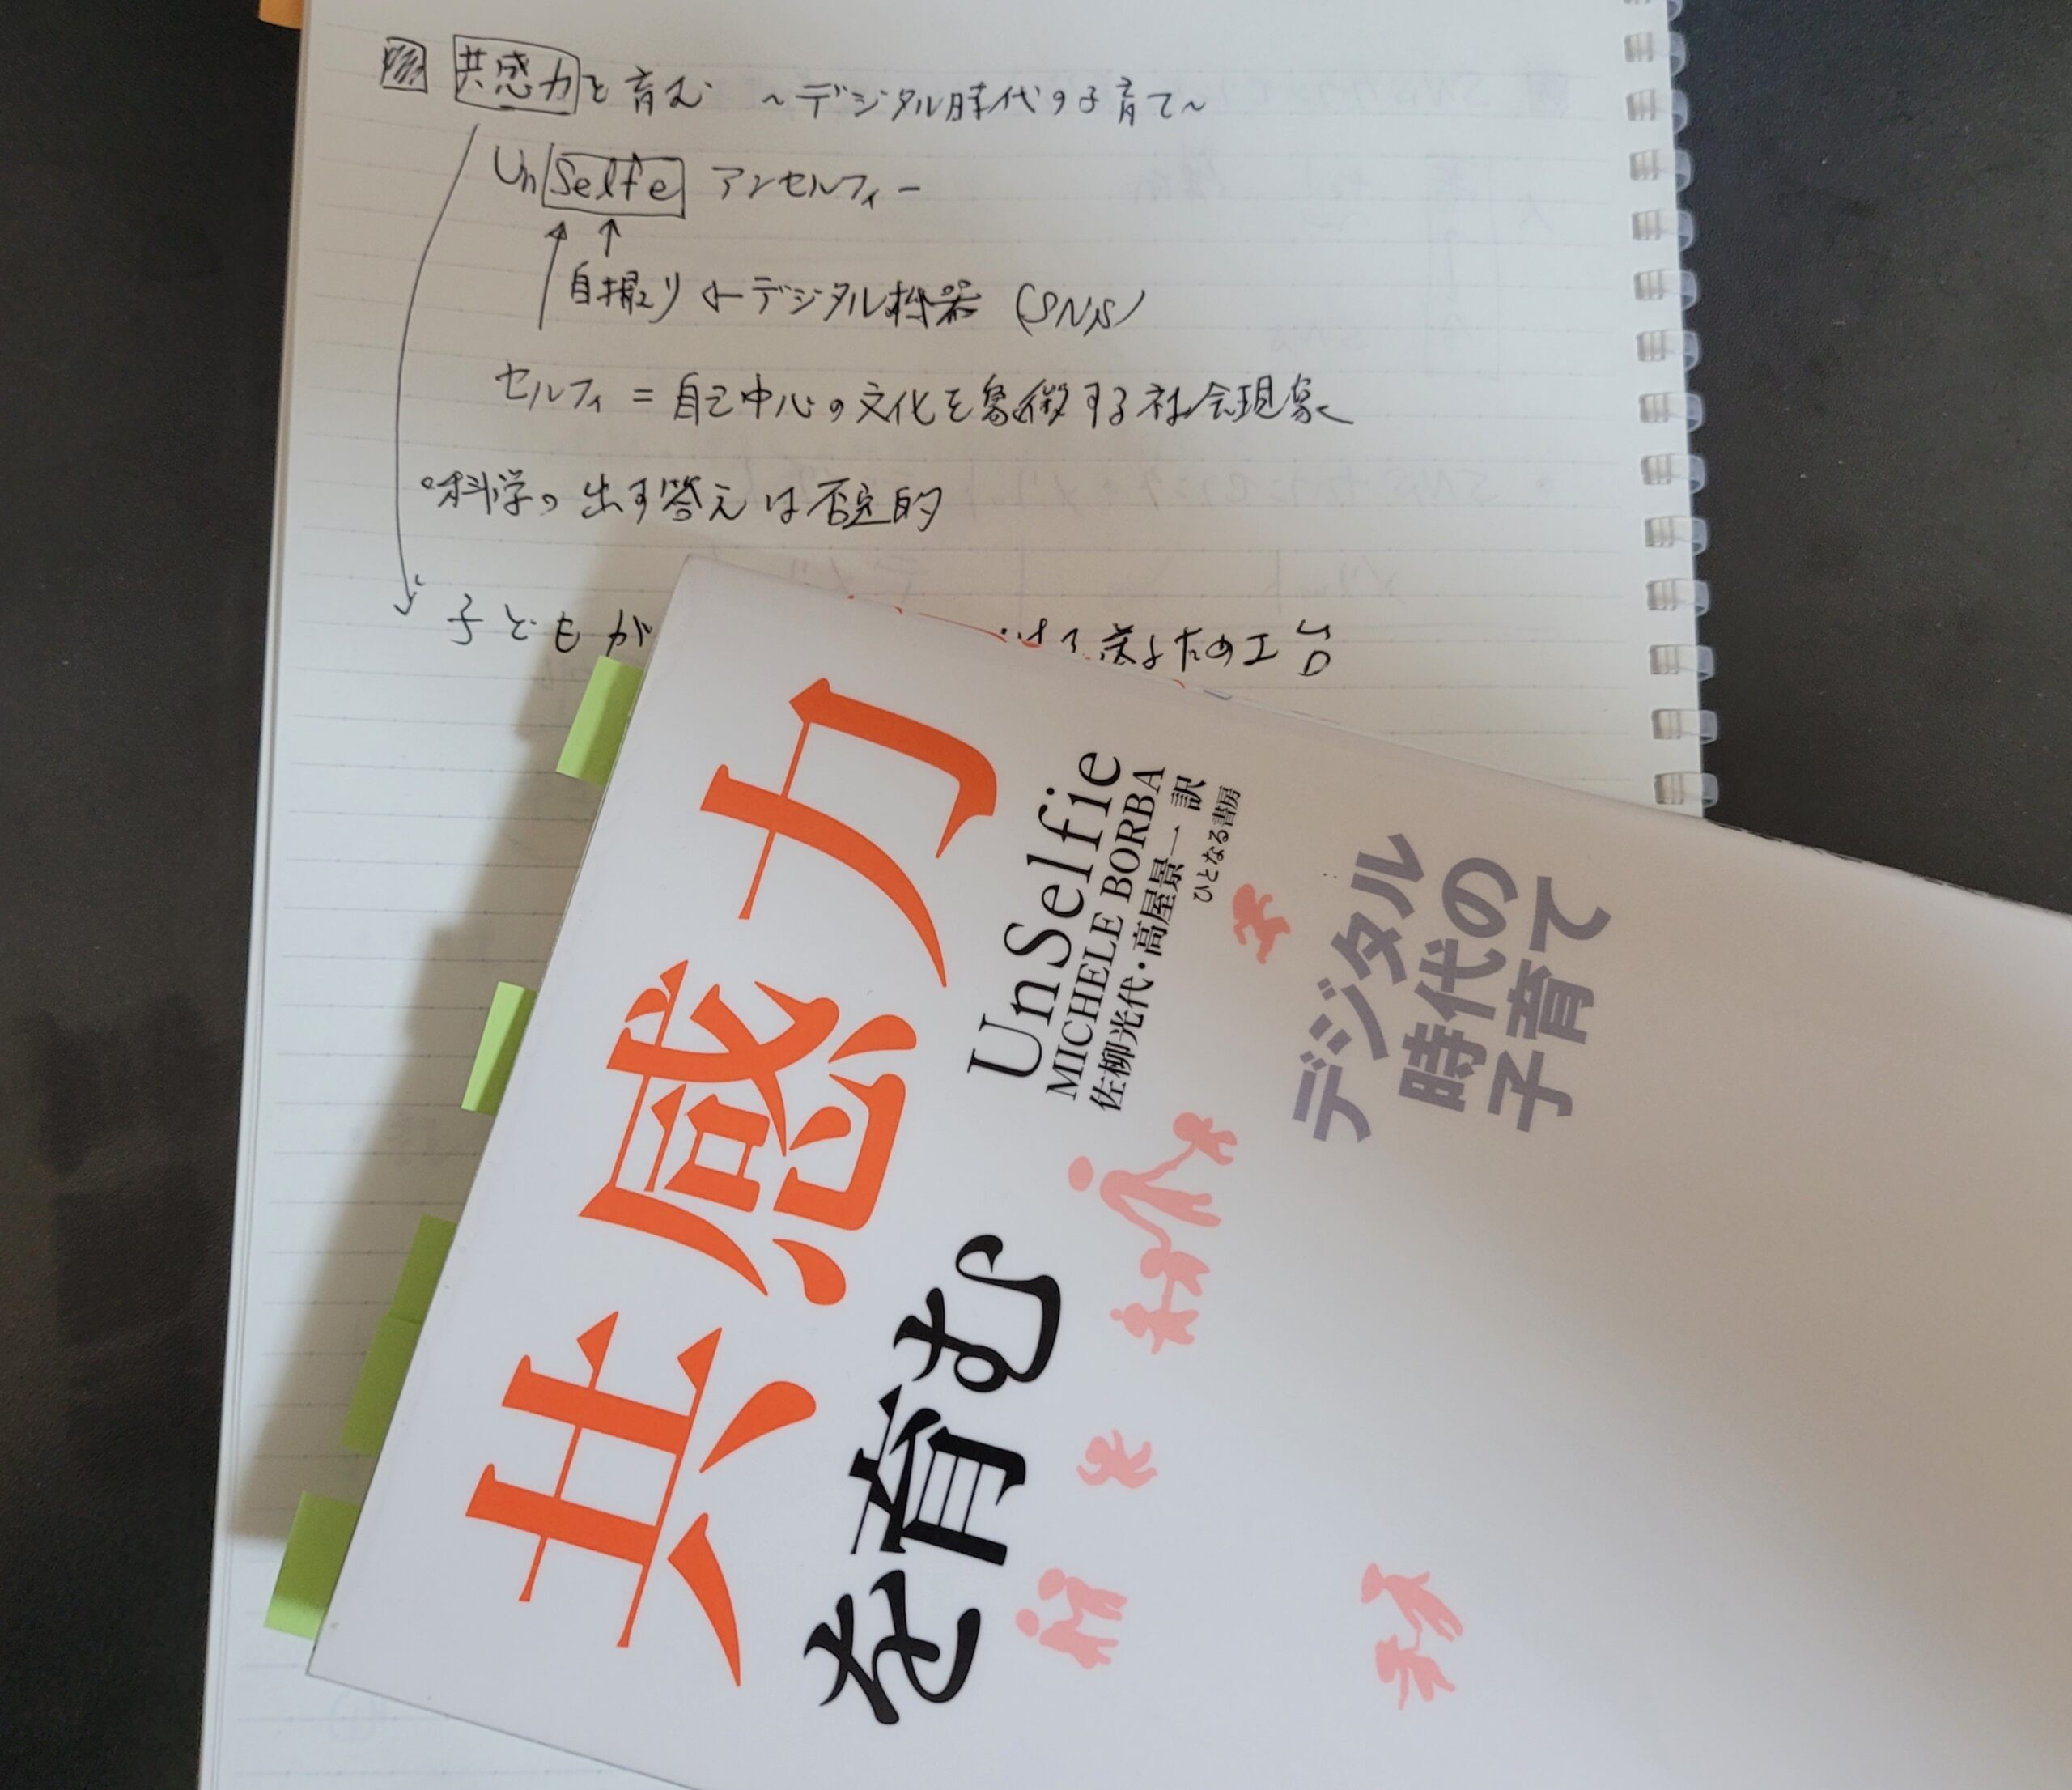 共感力を育む ～デジタル時代の子育て～
UnSelfe アンセルフィー
自撮り ← デジタル機器 (SNS)
セルフィ = 自己中心の文化を象徴する社会現象
・科学の出す答えは否定的
子どもが
ため
共感力
を育む
UnSelfie
MICHELE BORBA
佐柳光代・高屋景一 訳
ひとなる書房
デジタル
時代の
子育て